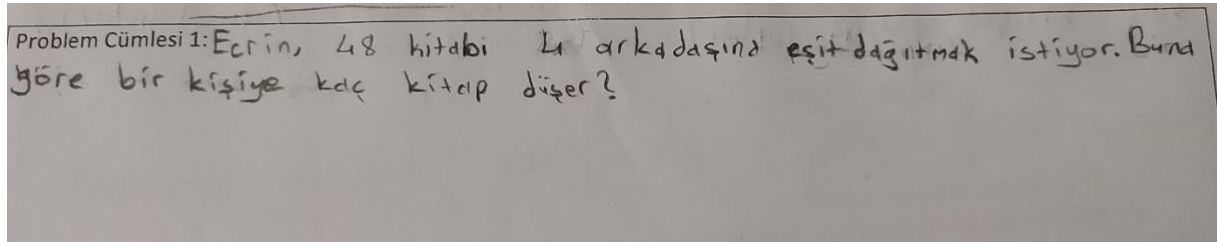 Problem Cümlesi 1: Ecrin, 48 kitabi 4 arkadaşına eşit dağıtmak istiyor. Buna
göre bir kişiye kaç kitap düşer?